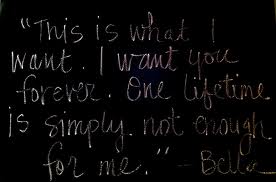 "This is what I
want. I want you
forever. One lifetime
is simply not enough
for me." - Bella